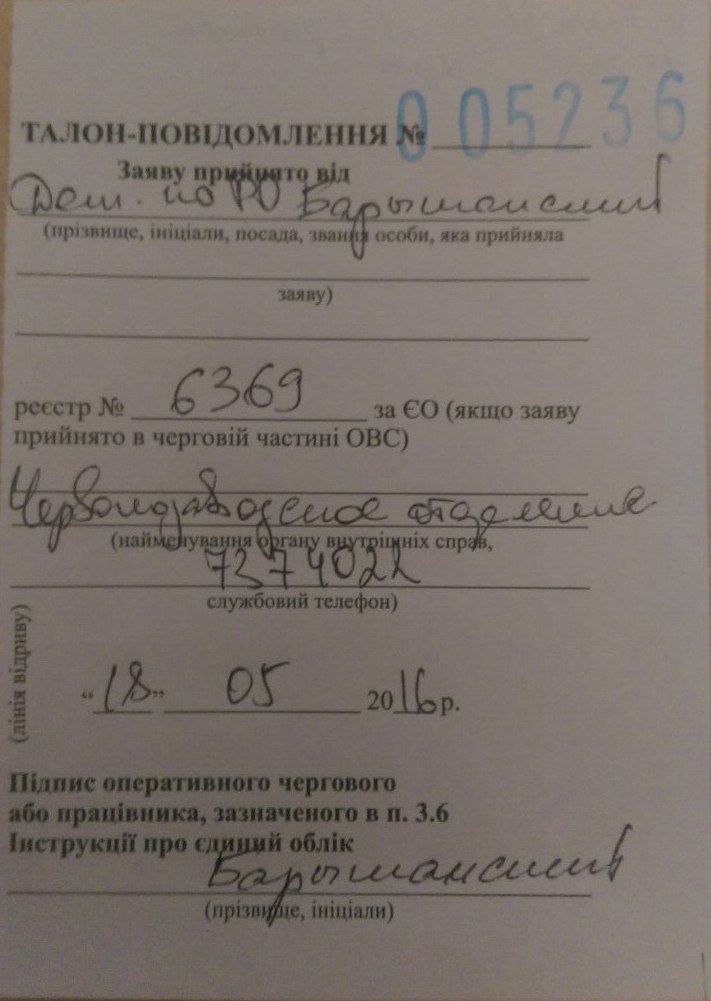 005236
ТАЛОН-ПОВІДОМЛЕННЯ №
Заяву прийнято від
по РО Барышанский
(прізвище, ініціали, посада, звання особи, яка прийняла
заяву)
реєстр № 6369 за ЄО (якщо заяву
прийнято в черговій частині ОВС)
Червонозаводское отделение
(найменування органу внутрішніх справ,
7374022
службовий телефон)
(лінія відриву)
“18” 05 2016 р.
Підпис оперативного чергового
або працівника, зазначеного в п. 3.6
Інструкції про єдиний облік
Барышанский
(прізвище, ініціали)